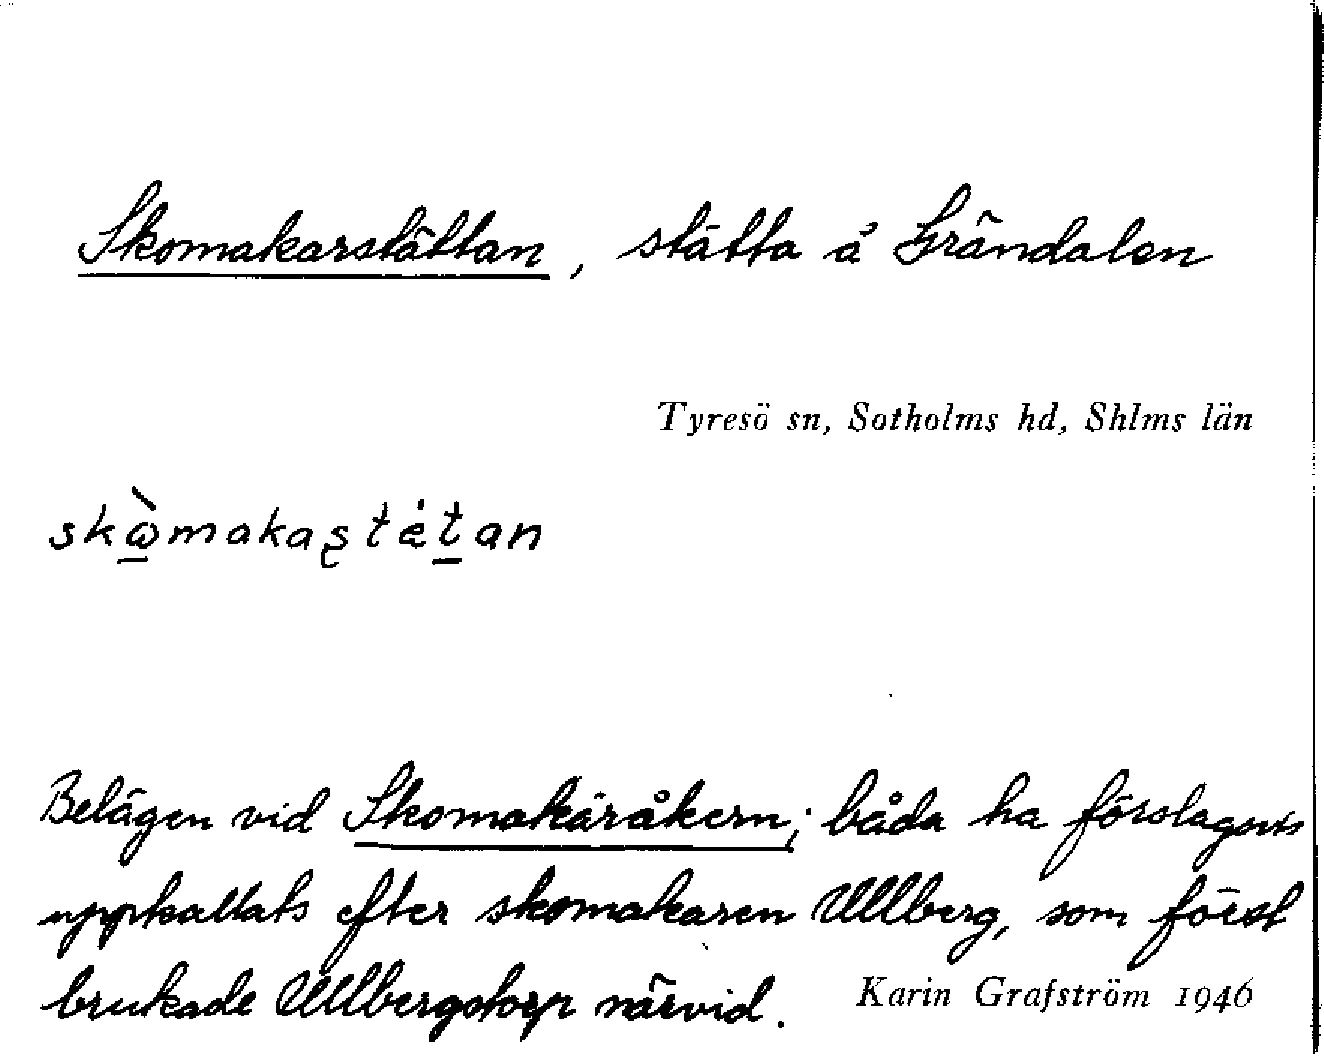 Skomakarstättan, stätta å Grändalen
Tyresö sn, Sotholms hd, Shlms län
skὼ̱makaʂtét̲an
Belägen vid Skomakaråkern; båda ha förslagsvis
uppkallats efter skomakaren Ullberg, som först
brukade Ullbergstorp närvid.
Karin Grafström 1946